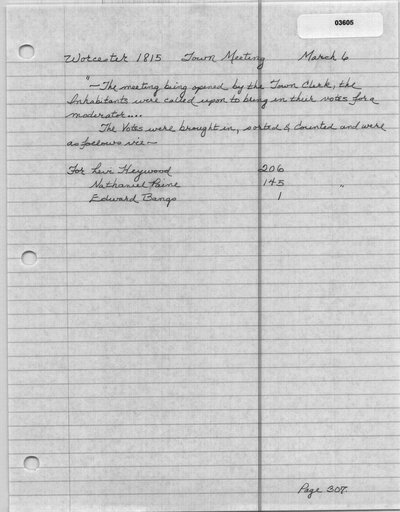 03605
Worcester 1815 Town Meeting March 6
"— The meeting being opened by the Town Clerk, the
Inhabitants were called upon to bring in their votes for a
moderator....
The Votes were brought in, sorted & Counted and were
as follows viz —
For Levi Heywood 206
Nathaniel Paine 145 "
Edward Bangs 1
Page 307.